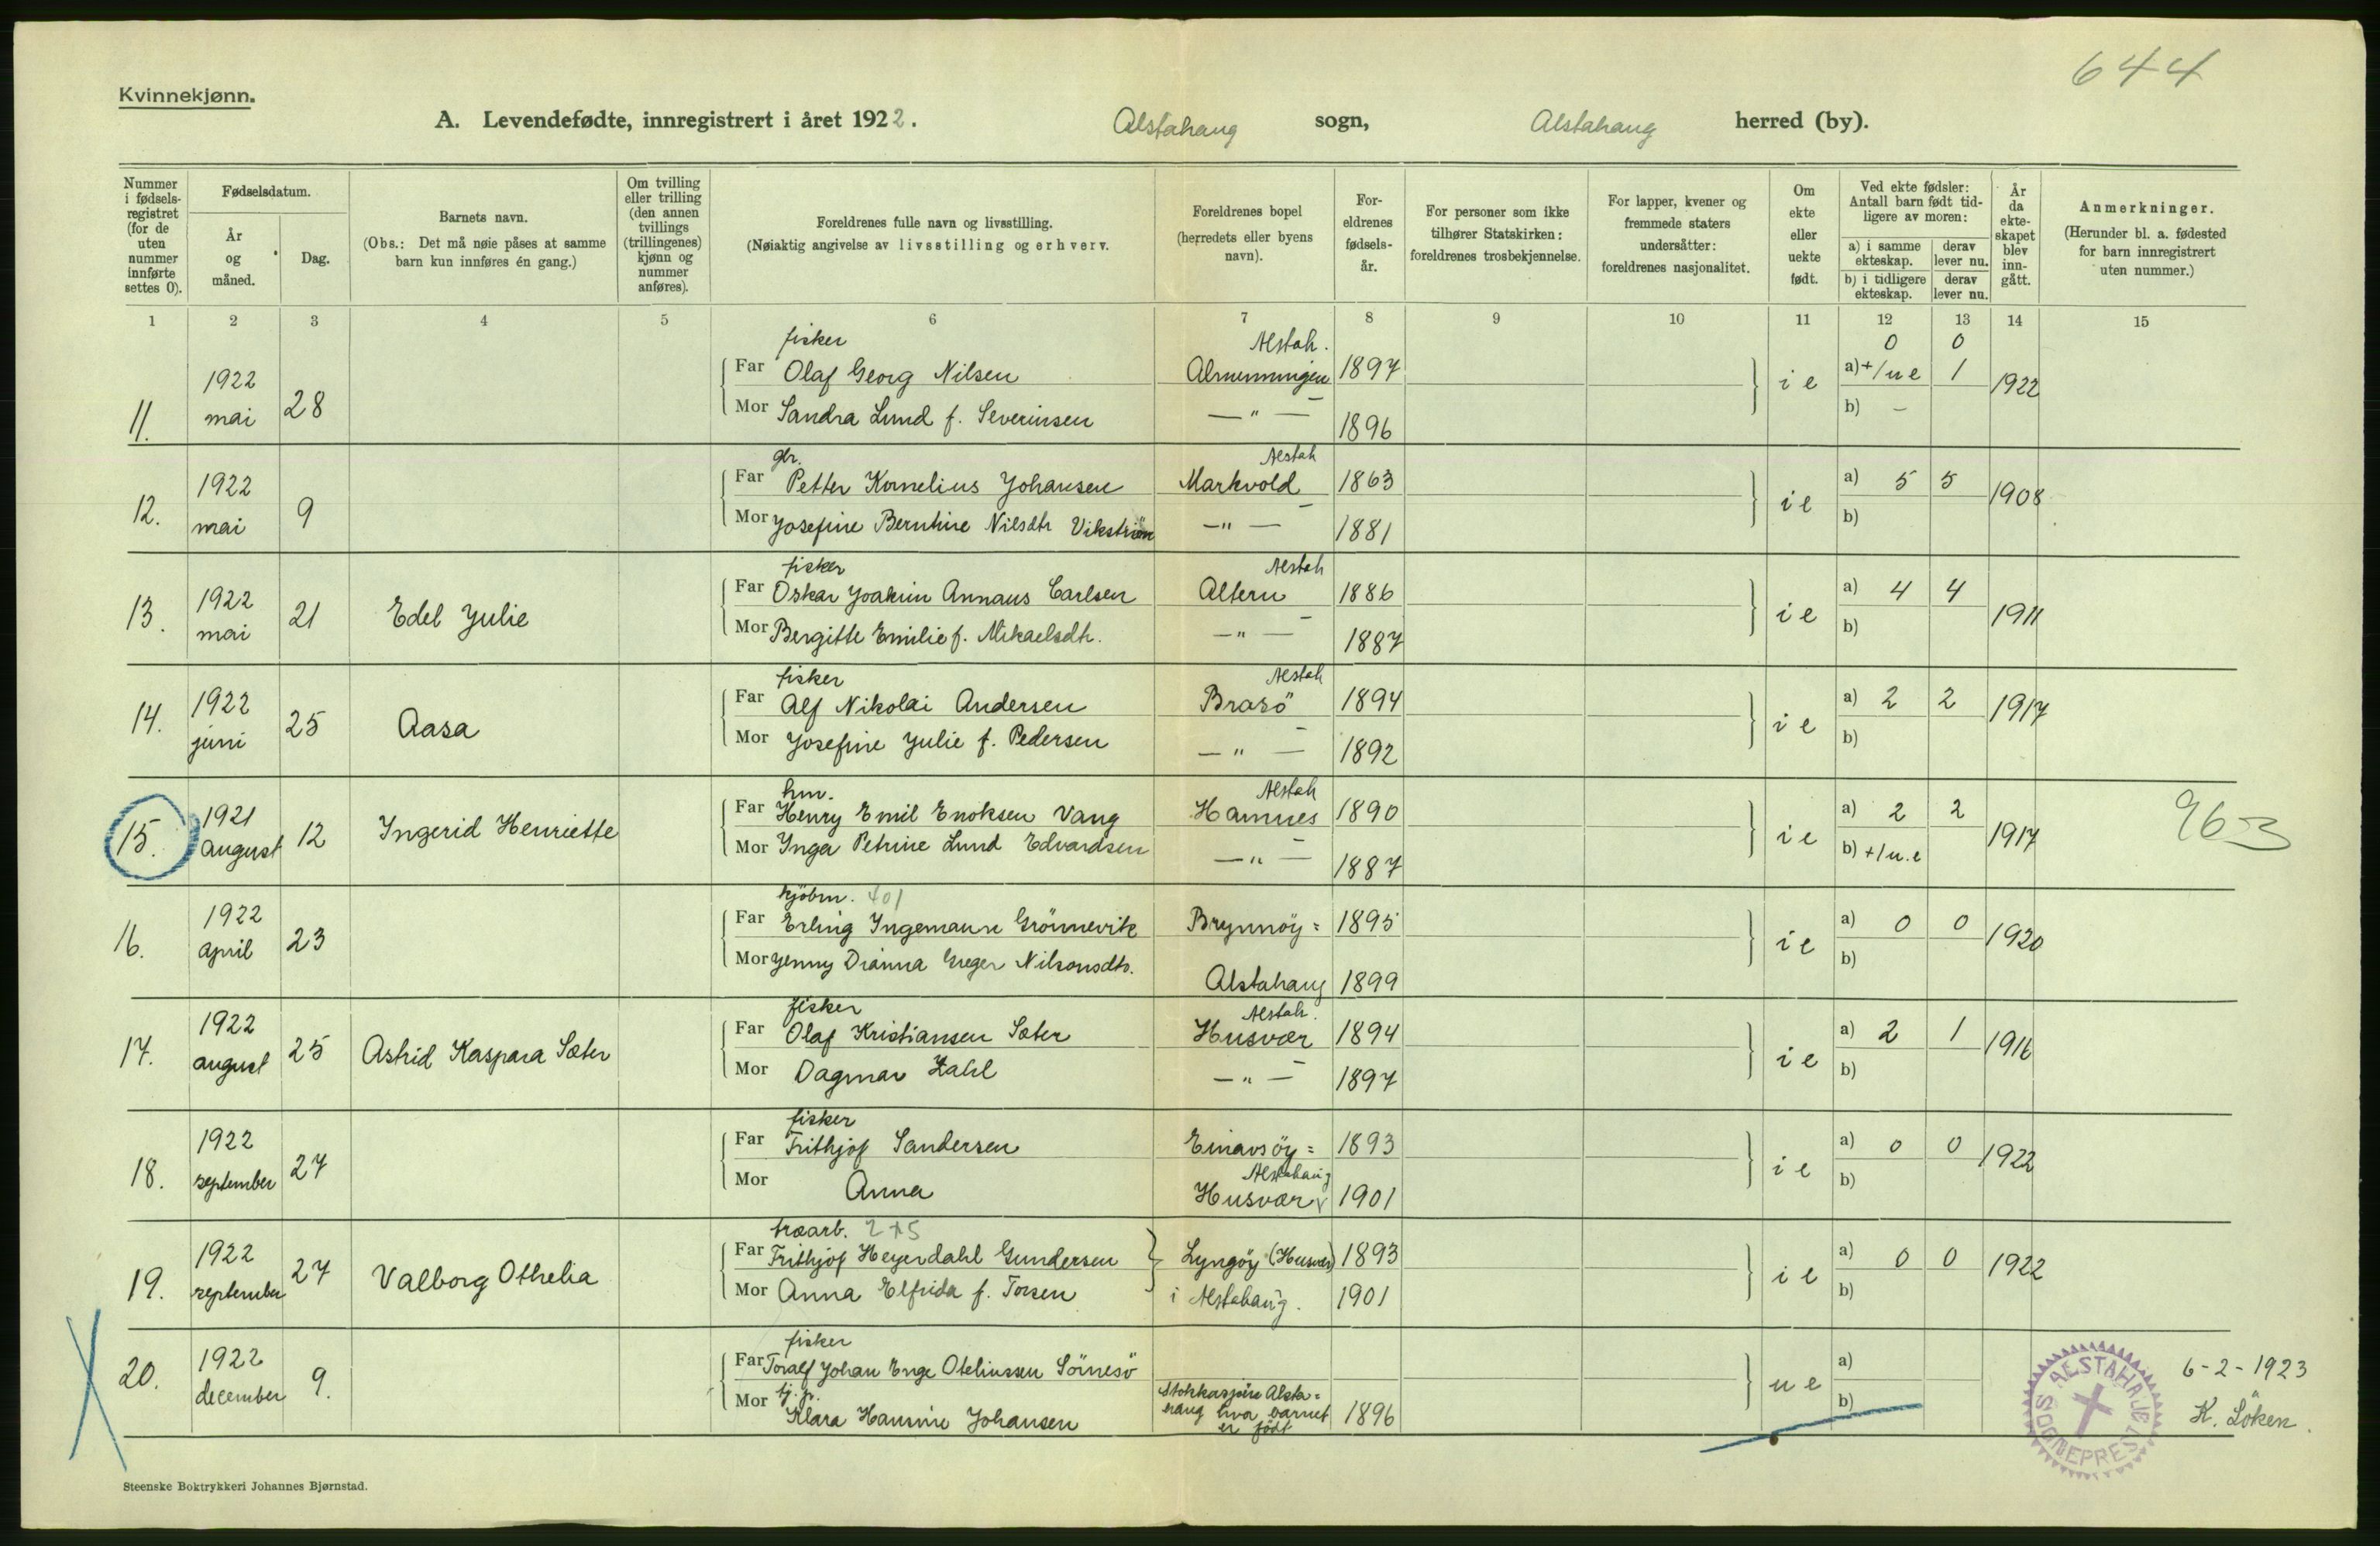 644
Kvinnekjønn.
A. Levendefødte, innregistrert i året 1922. Alstahaug sogn, Alstahaug herred (by).
Nummer i fødsels- registret (for de uten nummer innførte settes 0).
Fødselsdatum.
År og måned.
Dag.
Barnets navn.
(Obs.: Det må nøie påses at samme barn kun innføres én gang.)
Om tvilling eller trilling (den annen tvillings (trillingenes) kjønn og nummer anføres).
Foreldrenes fulle navn og livsstilling.
(Nøiaktig angivelse av livsstilling og erhverv.
Foreldrenes bopel (herredets eller byens navn).
For- eldrenes fødsels- år.
For personer som ikke tilhører Statskirken: foreldrenes trosbekjennelse.
For lapper, kvener og fremmede staters undersåtter: foreldrenes nasjonalitet.
Om ekte eller uekte født.
Ved ekte fødsler: Antall barn født tid- ligere av moren:
a) i samme ekteskap. derav lever nu.
b) i tidligere ekteskap. derav lever nu.
År da ekte- skapet blev inn- gått.
Anmerkninger.
(Herunder bl. a. fødested for barn innregistrert uten nummer.)
1 2 3 4 5 6 7 8 9 10 11 12 13 14 15
fisker Alstah. 0 0
11. 1922 mai 28 Far Olaf Georg Nilsen Almenningen 1897 i e a) +1 u e 1 1922
Mor Sandra Lund f. Severinsen — " — 1896 b) –
gbr. Alstah
12. 1922 mai 9 Far Petter Kornelius Johansen Markvold 1863 i e a) 5 5 1908
Mor Josefine Berntine Nilsdtr Vikström — " — 1881 b)
fisker Alstah
13. 1922 mai 21 Edel Julie Far Oskar Joakim Annaus Carlsen Altern 1886 i e a) 4 4 1911
Mor Bergitte Emilie f. Mikaelsdtr. — " — 1887 b)
fisker Alstah
14. 1922 juni 25 Aasa Far Alf Nikolai Andersen Brasö 1894 i e a) 2 2 1917
Mor Josefine Julie f. Pedersen — " — 1892 b)
hm. Alstah
15. 1921 august 12 Ingerid Henriette Far Henry Emil Enoksen Vang Hamnes 1890 i e a) 2 2 1917 963
Mor Inga Petrine Lund Edvardsen — " — 1887 b) +1 u.e
kjöbm. 401
16. 1922 April 23 Far Erling Ingemann Grönnevik Brynnöy = 1895 i e a) 0 0 1920
Mor Jenny Dianna Greger Nilsonsdtr. Alstahaug 1899 b)
fisker Alstah.
17. 1922 august 25 Astrid Kaspara Sæter Far Olaf Kristiansen Sæter Husvær 1894 i e a) 2 1 1916
Mor Dagmar Zahl — " — 1897 b)
fisker
18. 1922 september 27 Far Frithjof Sandersen Einarsöy = 1893 i e a) 0 0 1922
Alstahaug
Mor Anna Husvær 1901 b)
træarb. 2+5
19. 1922 september 27 Valborg Othelia Far Frithjof Heyerdahl Gundersen Lyngöy (Husvær) 1893 i e a) 0 0 1922
Mor Anna Elfrida f. Torsen i Alstahaug. 1901 b)
fisker
20. 1922 december 9. Far Toralf Johan Enge Oteliussen Sörnesö u e a) 6-2-1923
tj.p. Stokkasjöen Alsta=
Mor Klara Hansine Johansen haug hvor barnet er födt 1896 b) K. Löken.
ALSTAHAUG SOGNEPREST
Steenske Boktrykkeri Johannes Bjørnstad.